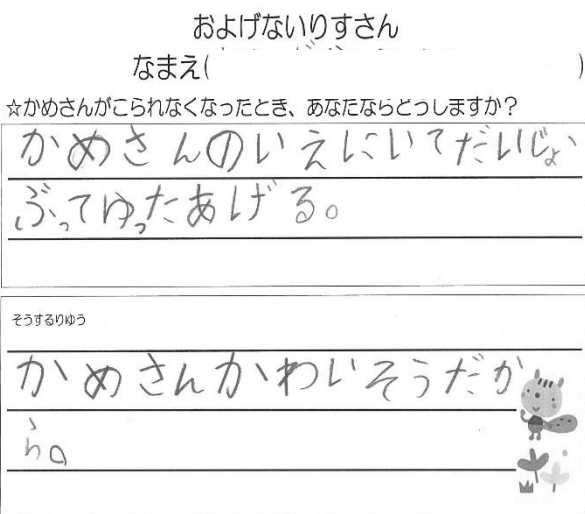 およげないりすさん
なまえ( )
☆かめさんがこられなくなったとき、あなたならどうしますか?
かめさんのいえにいてだいじょ
ぶってゆったあげる。
そうするりゆう
かめさんかわいそうだか
ら。